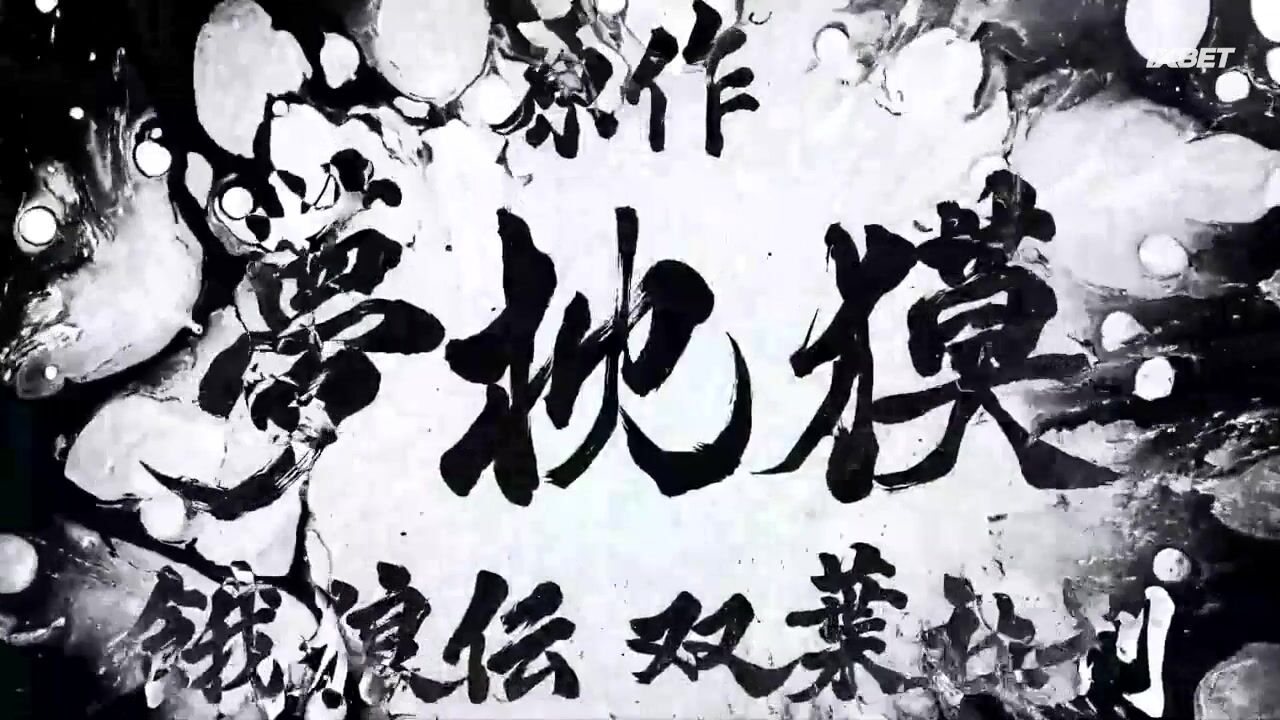 1XBET
原作
夢枕獏
餓狼伝 双葉社刊